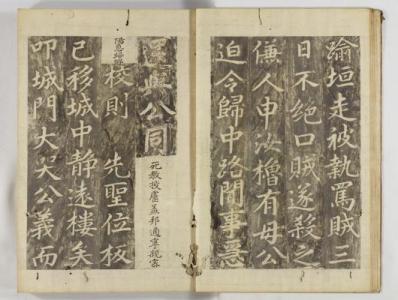 踰垣走被執罵賊三
日不絕口賊遂殺之
傔人申汝櫓有母公
迫令歸中路聞事急
與公同
死教授盧盖邦適寧親客
校則　先聖位板
已移城中靜遠樓矣
叩城門大哭公義而